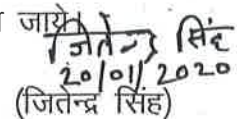 जाये।
जितेन्द्र सिंह
20/01/2020
(जितेन्द्र सिंह)